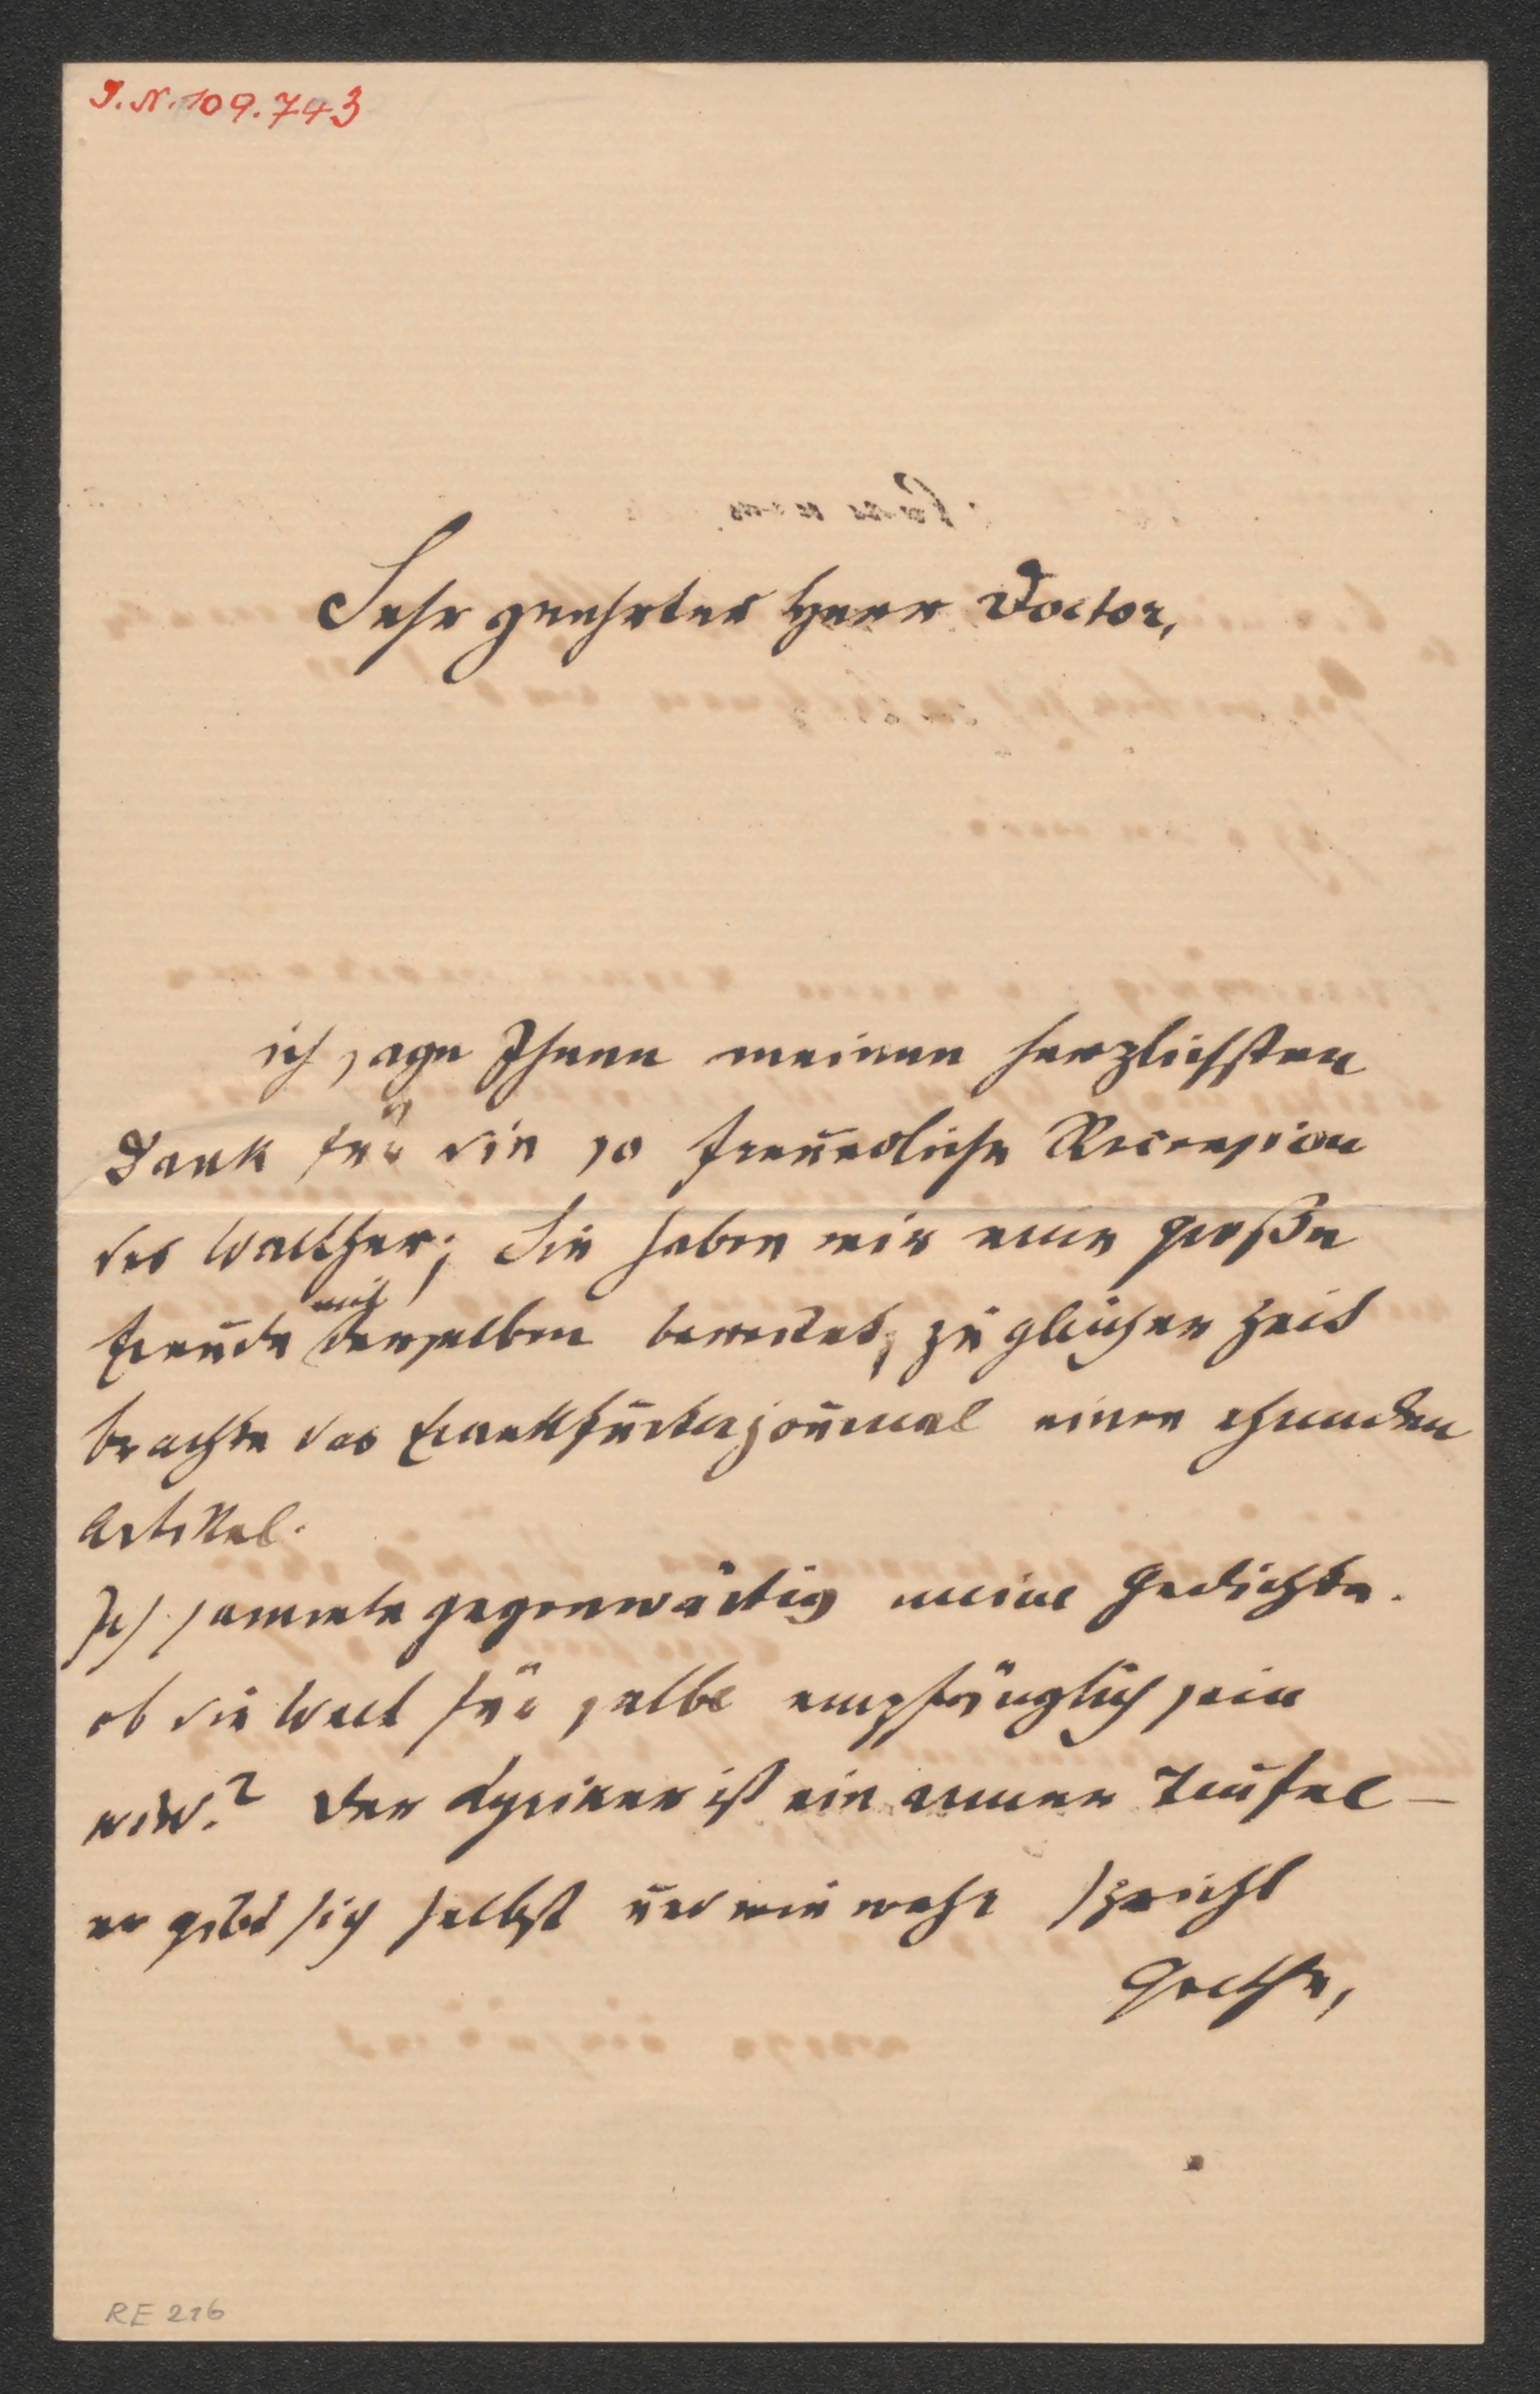 J. N. 109.743
Sehr geehrter Herr Doctor,
ich sage Ihnen meinen herzlichsten
Dank für die so freundliche Recension
des Walther; Sie haben mir eine große
Freude mit derselben bereitet, zu gleicher Zeit
brachte das Frankfurterjournal einen ehrenden
Artikel.
Ich sammle gegenwärtig meine Gedichte.
ob die Welt für selbe empfänglich sein
wird? Der Lyriker ist ein armer Teufel –
er gibt sich selbst und wie wahr spricht
Goethe,
RE 216